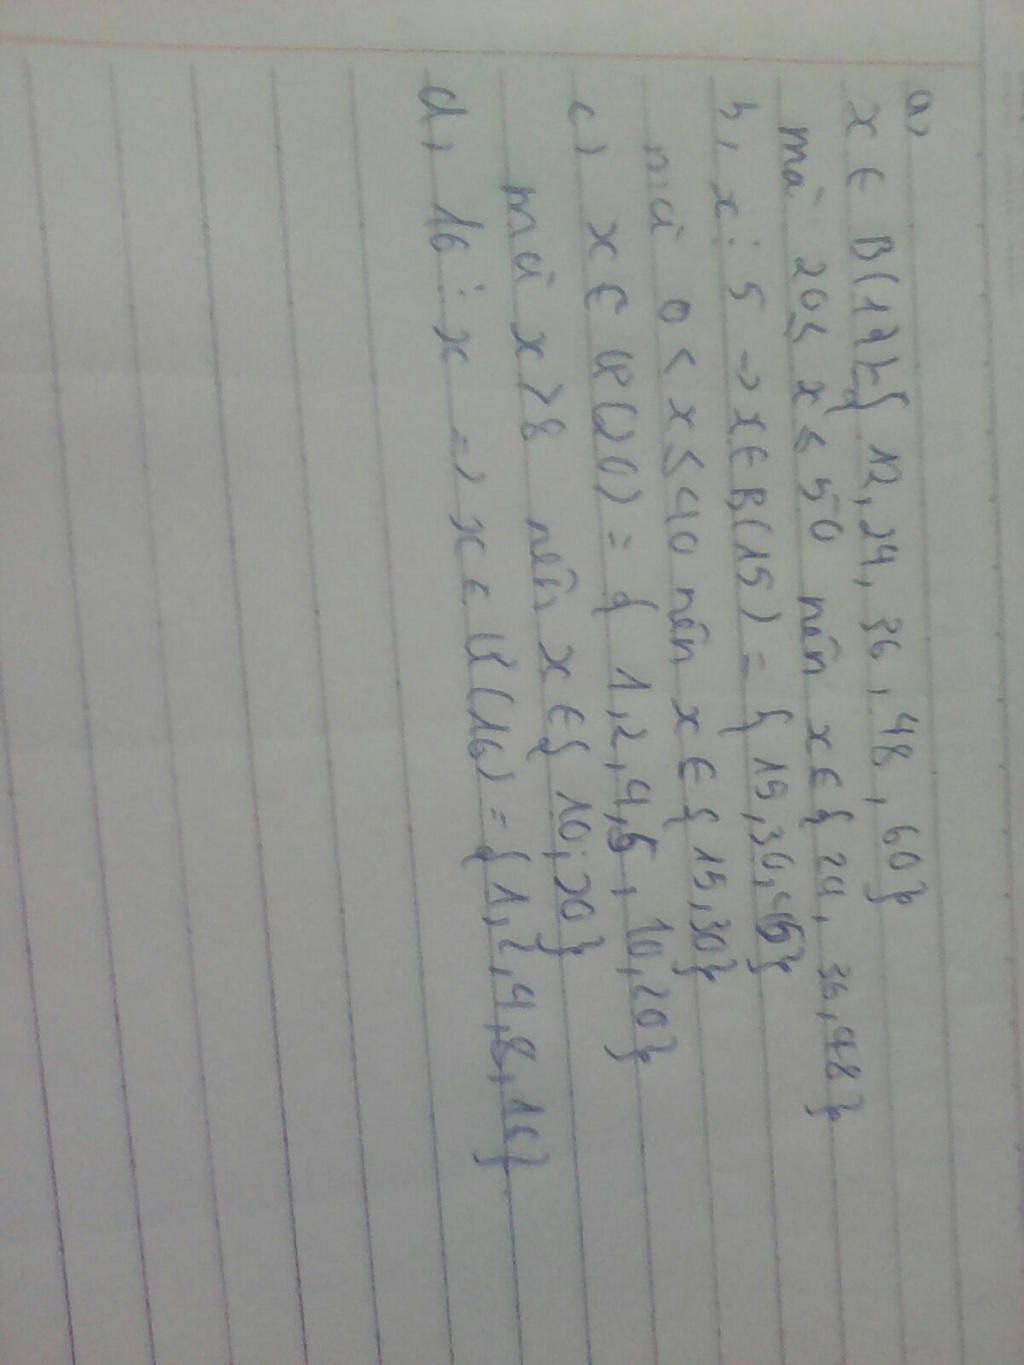 a,
x ∈ B(12)={ 12, 24, 36, 48, 60}
mà 20≤ x ≤ 50 nên x∈{ 24, 36, 48}
b, x ⋮ 5 => x∈ B(15) = { 15, 30, 45}
mà 0 < x ≤ 40 nên x ∈ { 15, 30}
c) x ∈ Ư(20) = { 1, 2, 4, 5, 10, 20}
mà x > 8 nên x ∈{ 10; 20}
d, 16 ⋮ x => x ∈ Ư(16) = { 1, 2, 4, 8, 16}